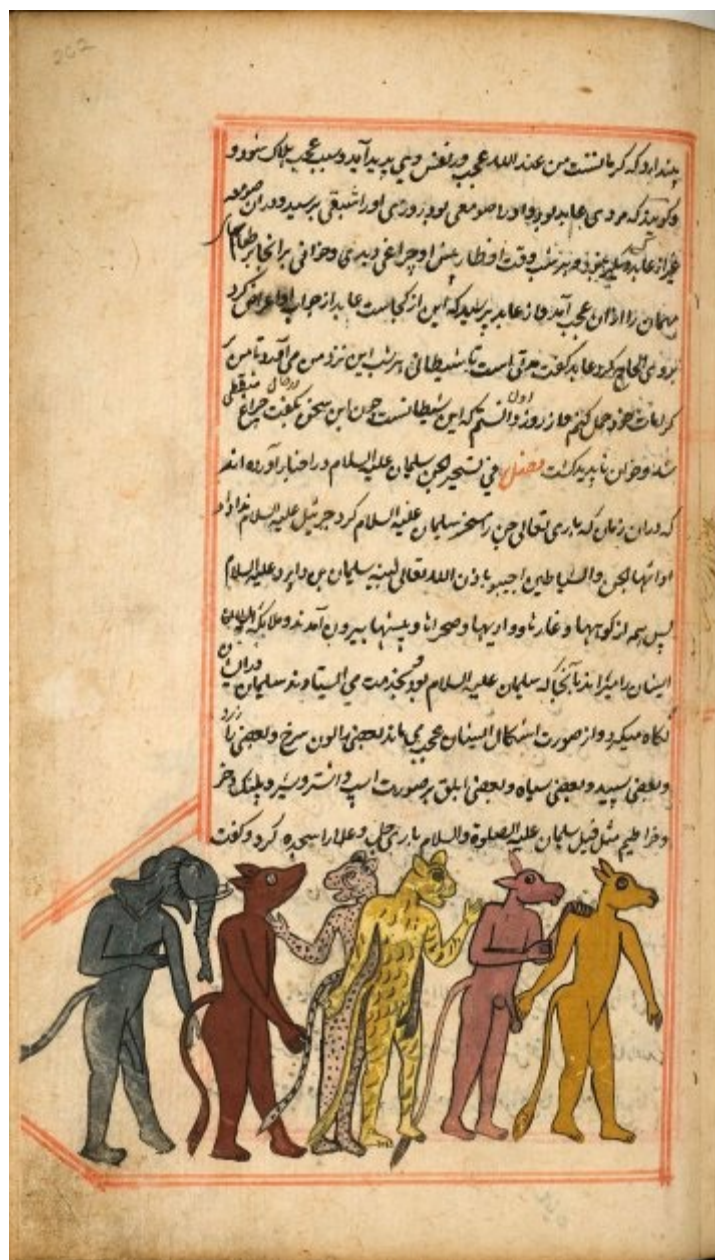 202
پندارد که کرمانست من عند الله عجب در نفس وی پدید آید و سبب عجب هلاک شود و
و گویند که مردی عابد بود و او را صومعی بود روزی او را شبقی برسید و در آن صومعه
غیر از عابد و نبود و هر شب وقت افطار پیش او چراغی دیدی و خوانی بر آنجا بر طعام
مهمان را از آن عجب آمد و از عابد پرسید که این از کجاست عابد از جواب او اعراض کرد
و وی الحاح کرد عابد گفت مدتی است تا شیطانی هر شب این نزد من می آورد تا من
کرامات خود حمل کنم و از روز اول دانستم که این شیطانست چون این سخن بگفت در حال چراغ منطفی
شد و خوان ناپدید گشت فصل فی تسخیر الجن سلیمان علیه السلام در اخبار آورده اند
که در آن زمان که باری تعالی جن را مسخر سلیمان علیه السلام کرد جبرئیل علیه السلام ندا داد
ایها الجن والشیاطین اجیبوا باذن الله تعالی لنبیه سلیمان بن داود علیه السلام
پس همه از کوهها و غارها و وادیها و صحراها و بیشها بیرون آمدند و ملایکه
ایشان را میراندند تا آنجا که سلیمان علیه السلام بود بخدمت می ایستاوند سلیمان در ایشان
نگاه میکرد و از صورت اشکال ایشان عجب می ماند بعضی بالون سرخ و بعضی زرد
و بعضی سپید و بعضی سیاه و بعضی ابلق بر صورت اسپ و اشتر و شیر و پلنک و خر
و خراطیم مثل فیل سلیمان علیه الصلوة والسلام باری جل و علا را سجده کرد و گفت